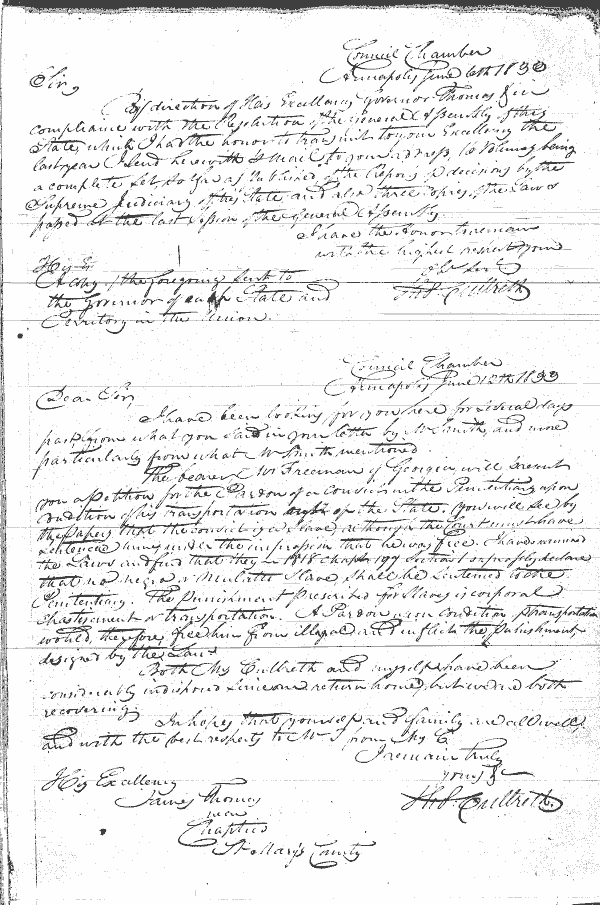 Council Chamber
Annapolis June 6th 1833
Sir,
By direction of His Excellency Governor Thomas & in
compliance with the Resolution of the General Assembly of this
State, which I had the honor to transmit to your Excellency the
last year I send herewith & mail to your address, 10 Volumes being
a complete set so far as published of the Reports of decisions by the
Supreme Judiciary of this State, and also three copies of the Laws
passed at the last session of the General Assembly.
I have the honor to remain
with the highest respect your
Obt. Sert.
Ths. Culbreth
His E
A copy of the foregoing sent to
the Governor of each State and
Territory in the Union.
Council Chamber
Annapolis June 12th 1833
Dear Sir,
I have been looking for you here for several days
past from what you said in your letter by Mr Smith, and more
particularly from what Mr Smith mentioned.
The bearer Mr Freeman of Georgia, will present
you a Petition for the Pardon of a convict in the Penitentiary upon
condition of his transportation out of the State. You will see by
the papers that the convict is a Slave, although the Court must have
sentenced him under the impression that he was free. I have examined
the Laws and find that they - 1818 Chapter 197 Section expressly declare
that no negro or Mulatto Slave shall be sentenced to the
Penitentiary. The punishment prescribed for Slaves is corporal
chastisement or transportation. A Pardon upon condition of transportation
would therefore free him from illegal and inflict the Punishment
designed by the Law.
Both Mrs Culbreth and myself have been
considerably indisposed since our return home, but we are both
recovering.
In hopes that yourself and family are all well,
and with the best respects to Mrs T from Mrs C.
I remain truly
yours &c
Ths. Culbreth.
His Excellency
James Thomas
near
Chaptico
St. Mary's County